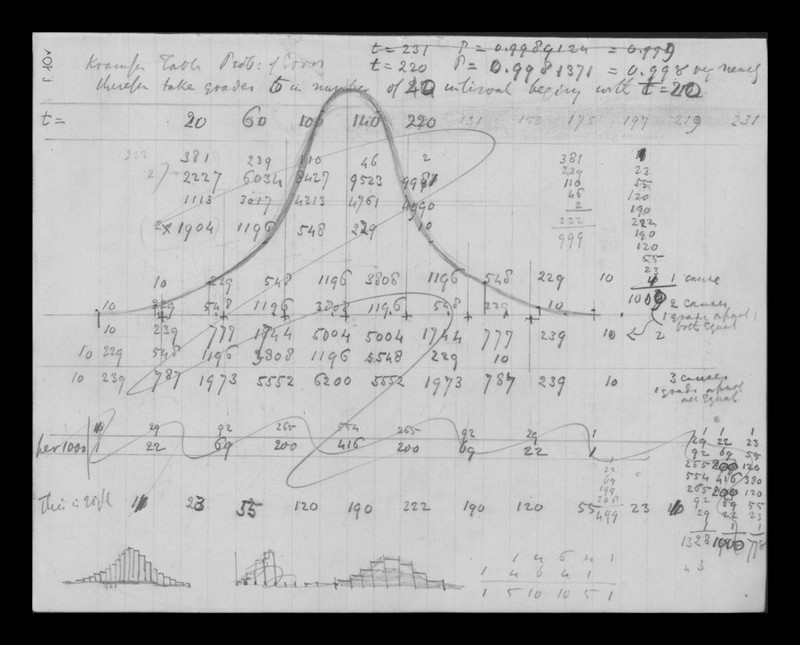 t = 231 P = 0.9989124 = 0.999
Kramp's Table Prob: of Error t = 220 P = 0.9981371 = 0.998 very nearly
therefore take grades in number of 20 interval begin with t = 20
t = 20 60 100 140 220 131 153 175 197 219 231
222 381 239 110 46 2
2227 6034 8427 9523 9981
1113 3017 4213 4761 4990
2x 1904 1196 548 229 10
381
239
110
46
2
222
999
1
23
55
120
190
222
190
120
55
23
10 229 548 1196 3808 1196 548 229 10 1 cause
10 229 548 1196 3808 1196 548 229 10 2 causes
1 grade apart,
both equal
10 239 777 1744 5004 5004 1744 777 239 10 2
10 229 548 1196 3808 1196 548 229 10
10 239 787 1973 5552 6200 5552 1973 787 239 10 3 causes
1 grade apart
all equal
29 92 265 554 265 92 29 1
per 1000 1 22 69 200 416 200 69 22 1
1
22
69
199
208
499
This is right 1 23 55 120 190 222 190 120 55 23 1
1 1 1
29 22 23
92 69 55
265 200 120
554 416 380
265 200 120
92 69 55
29 22 23
1 1 1
1328 1000 778
1 4 6 4 1
1 4 6 4 1
1 5 10 10 5 1